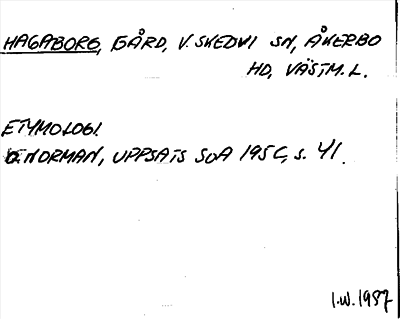 HAGABORG, GÅRD, V. SKEDVI SN, ÅKERBO
HD, VÄSTM. L.
ETYMOLOGI.
NORMAN, UPPSATS SOA 195C, S. 41.
I.W. 1987